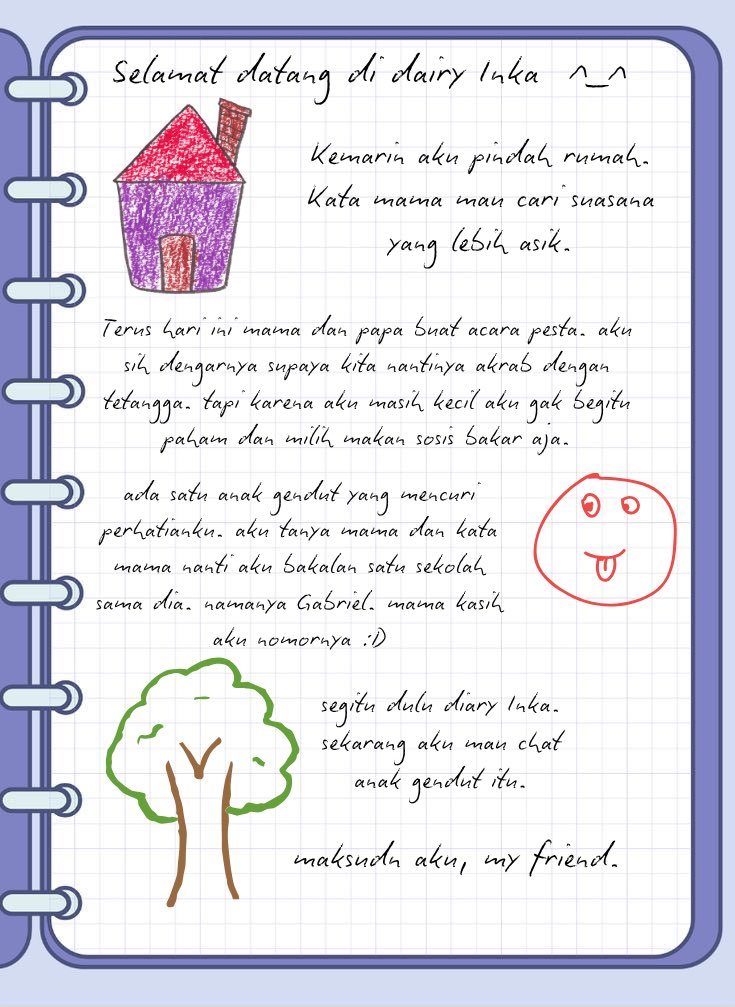 Selamat datang di dairy Inka ^_^
Kemarin aku pindah rumah.
Kata mama mau cari suasana
yang lebih asik.
Terus hari ini mama dan papa buat acara pesta. aku
sih dengarnya supaya kita nantinya akrab dengan
tetangga. tapi karena aku masih kecil aku gak begitu
paham dan milih makan sosis bakar aja.
ada satu anak gendut yang mencuri
perhatianku. aku tanya mama dan kata
mama nanti aku bakalan satu sekolah
sama dia. namanya Gabriel. mama kasih
aku nomornya :D
segitu dulu diary Inka.
sekarang aku mau chat
anak gendut itu.
maksudu aku, my friend.